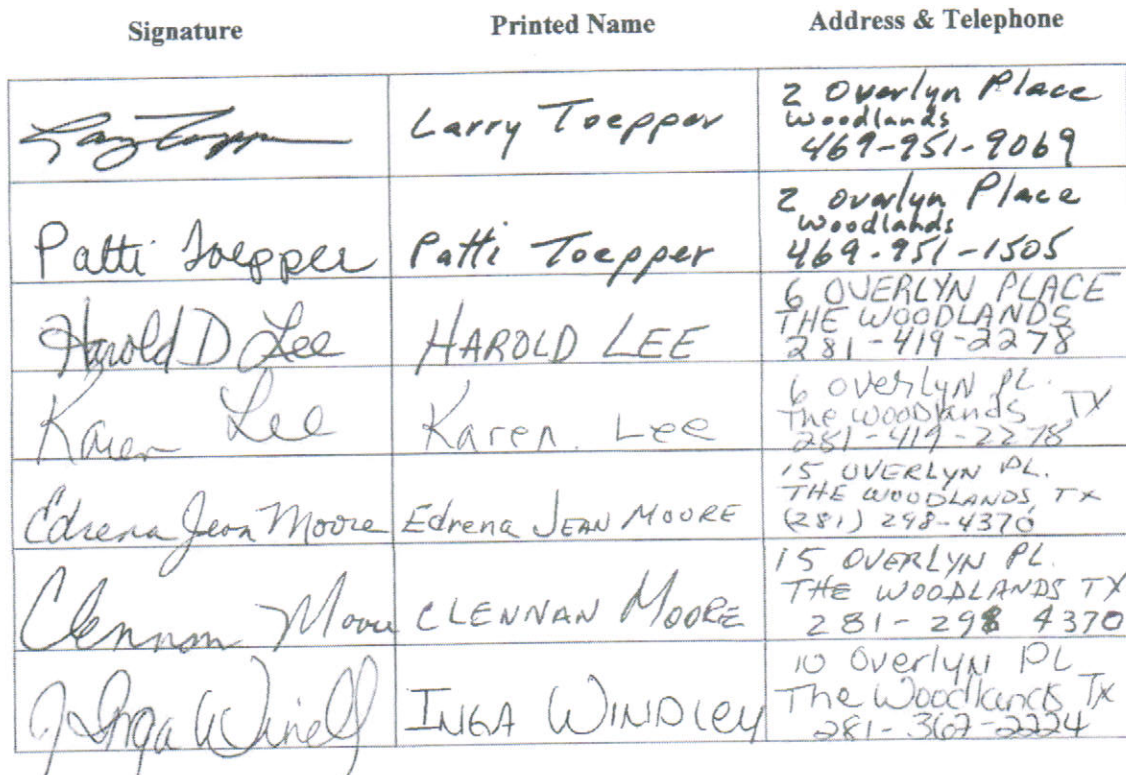 Signature Printed Name Address & Telephone
Larry Toepper Larry Toepper 2 Overlyn Place
Woodlands
469-951-9069
Patti Toepper Patti Toepper 2 Overlyn Place
Woodlands
469-951-1505
Harold D Lee HAROLD LEE 6 OVERLYN PLACE
THE WOODLANDS
281-419-2278
Karen Lee Karen. Lee 6 Overlyn PL.
The Woodlands, TX
281-419-2278
Edrena Jean Moore Edrena JEAN MOORE 15 OVERLYN PL.
THE WOODLANDS, TX
(281) 298-4370
Clennan Moore CLENNAN MOORE 15 OVERLYN PL.
THE WOODLANDS TX
281-298 4370
Inga INGA WINDLEY 10 Overlyn PL
The Woodlands TX
281-367-2224